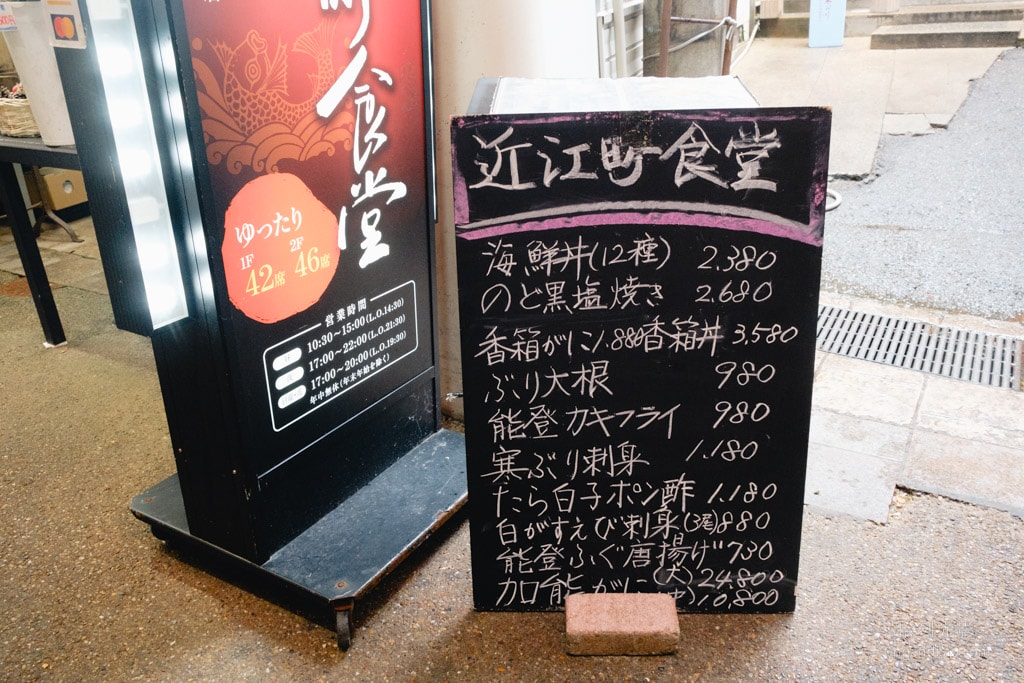 食堂
ゆったり
1F 2F
42席 46席
営業時間
10:30～15:00(L.O.14:30)
17:00～22:00(L.O.21:30)
17:00～20:00(L.O.19:30)
年中無休(年末年始を除く)
近江町食堂
海鮮丼(12種) 2.380
のど黒塩焼き 2.680
香箱がに1.880香箱丼 3,580
ぶり大根 980
能登カキフライ 980
寒ぶり刺身 1.180
たら白子ポン酢 1.180
白がすえび刺身(3尾)880
能登ふぐ唐揚げ 730
加能がに(大)24.800
(中)10.800